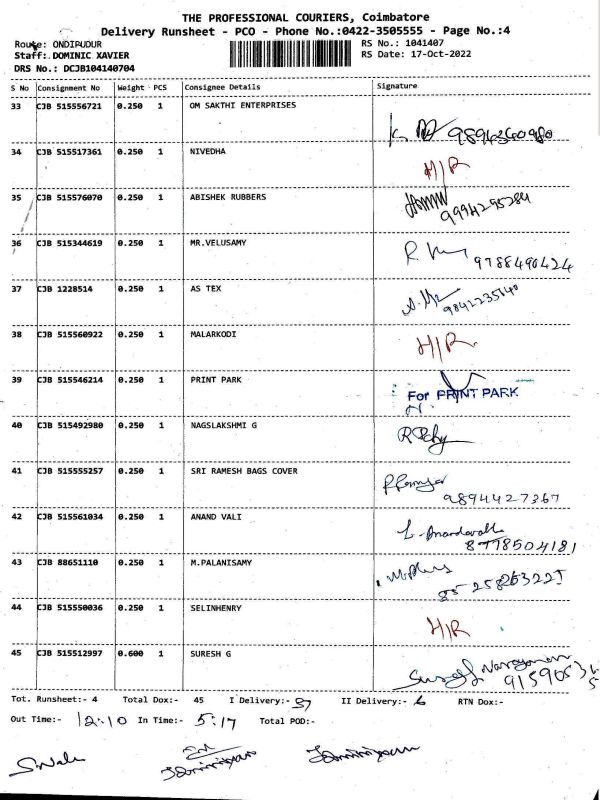 THE PROFESSIONAL COURIERS, Coimbatore
Delivery Runsheet - PCO - Phone No.:0422-3505555 - Page No.:4
Route: ONDIPUDUR RS No.: 1041407
Staff: DOMINIC XAVIER RS Date: 17-Oct-2022
DRS No.: DCJB104140704
S No Consignment No Weight PCS Consignee Details Signature
33 CJB 515556721 0.250 1 OM SAKTHI ENTERPRISES
34 CJB 515517361 0.250 1 NIVEDHA H/R
35 CJB 515576070 0.250 1 ABISHEK RUBBERS 9994295284
36 CJB 515344619 0.250 1 MR.VELUSAMY 9788490424
37 CJB 1228514 0.250 1 AS TEX
38 CJB 515560922 0.250 1 MALARKODI H/R
39 CJB 515546214 0.250 1 PRINT PARK For PRINT PARK
40 CJB 515492980 0.250 1 NAGSLAKSHMI G
41 CJB 515555257 0.250 1 SRI RAMESH BAGS COVER 9894427367
42 CJB 515561034 0.250 1 ANAND VALI 8778504181
43 CJB 88651110 0.250 1 M.PALANISAMY
44 CJB 515550036 0.250 1 SELINHENRY H/R
45 CJB 515512997 0.600 1 SURESH G
Tot. Runsheet:- 4 Total Dox:- 45 I Delivery:- II Delivery:- 6 RTN Dox:-
Out Time:- 12:10 In Time:- 5:17 Total POD:-